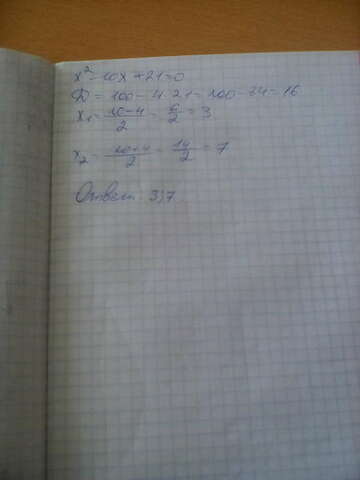 x² - 10x + 21 = 0
D = 100 - 4·21 = 100 - 84 = 16
x₁ = (10-4)/2 = 6/2 = 3
x₂ = (10+4)/2 = 14/2 = 7
Ответ: 3;7